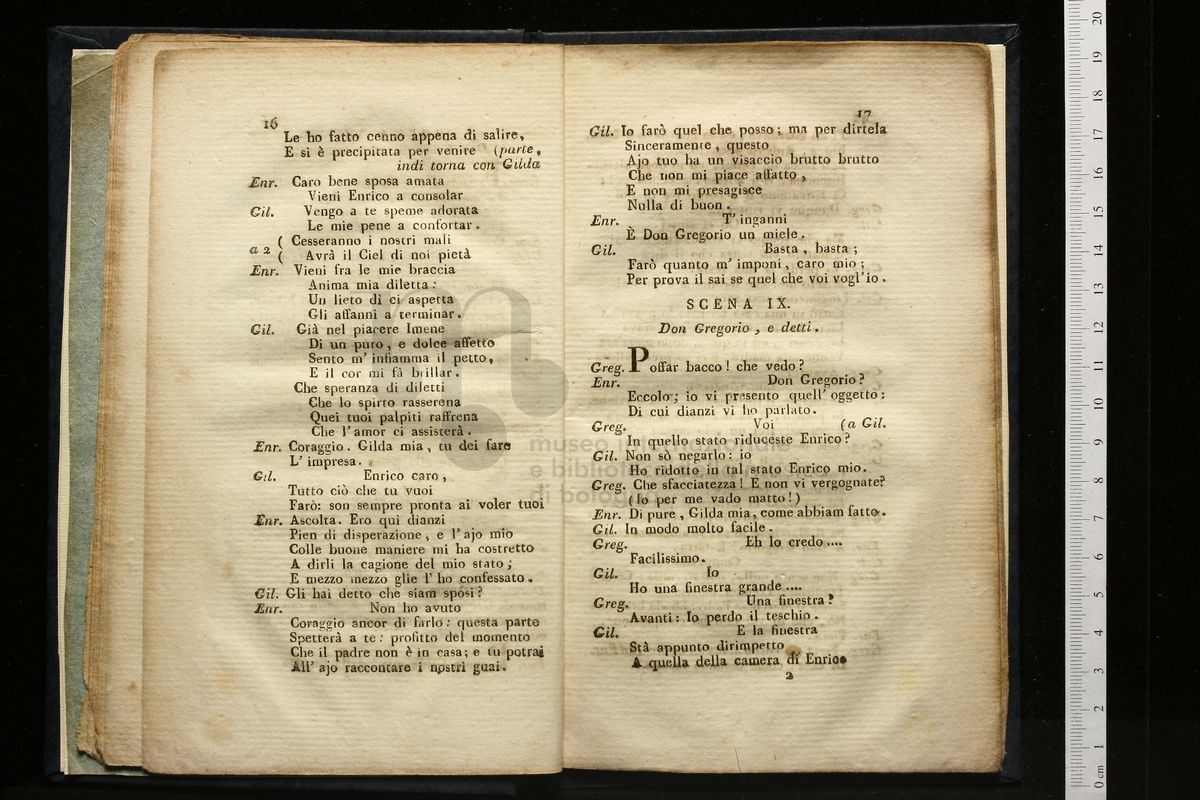 16
Le ho fatto cenno appena di salire,
E si è precipitata per venire (parte,
indi torna con Gilda
Enr. Caro bene sposa amata
Vieni Enrico a consolar
Gil. Vengo a te speme adorata
Le mie pene a confortar.
a 2 ( Cesseranno i nostri mali
( Avrà il Ciel di noi pietà
Enr. Vieni fra le mie braccia
Anima mia diletta:
Un lieto dì ci aspetta
Gli affanni a terminar.
Gil. Già nel piacere Imene
Di un puro, e dolce affetto
Sento m' infiamma il petto,
E il cor mi fà brillar.
Che speranza di diletti
Che lo spirto rasserena
Quei tuoi palpiti raffrena
Che l'amor ci assisterà.
Enr. Coraggio. Gilda mia, tu dei fare
L' impresa.
Gil. Enrico caro,
Tutto ciò che tu vuoi
Farò: son sempre pronta ai voler tuoi
Enr. Ascolta. Ero quì dianzi
Pien di disperazione, e l'ajo mio
Colle buone maniere mi ha costretto
A dirli la cagione del mio stato;
E mezzo mezzo glie l' ho confessato.
Gil. Gli hai detto che siam sposi?
Enr. Non ho avuto
Coraggio ancor di farlo: questa parte
Spetterà a te: profitto del momento
Che il padre non è in casa; e tu potrai
All' ajo raccontare i nostri guai.
17
Gil. Io farò quel che posso; ma per dirtela
Sinceramente, questo
Ajo tuo ha un visaccio brutto brutto
Che non mi piace affatto,
E non mi presagisce
Nulla di buon.
Enr. T' inganni
È Don Gregorio un miele.
Gil. Basta, basta;
Farò quanto m' imponi, caro mio;
Per prova il sai se quel che voi vogl'io.
SCENA IX.
Don Gregorio, e detti.
Greg. Poffar bacco! che vedo?
Enr. Don Gregorio?
Eccolo; io vi presento quell' oggetto:
Di cui dianzi vi ho parlato.
Greg. Voi (a Gil.
In quello stato riduceste Enrico?
Gil. Non sò negarlo: io
Ho ridotto in tal stato Enrico mio.
Greg. Che sfacciatezza! E non vi vergognate?
(Io per me vado matto!)
Enr. Di pure, Gilda mia, come abbiam fatto.
Gil. In modo molto facile.
Greg. Eh lo credo ....
Facilissimo.
Gil. Io
Ho una finestra grande ....
Greg. Una finestra?
Avanti: Io perdo il teschio.
Gil. E la finestra
Stà appunto dirimpetto
A quella della camera di Enrico
2